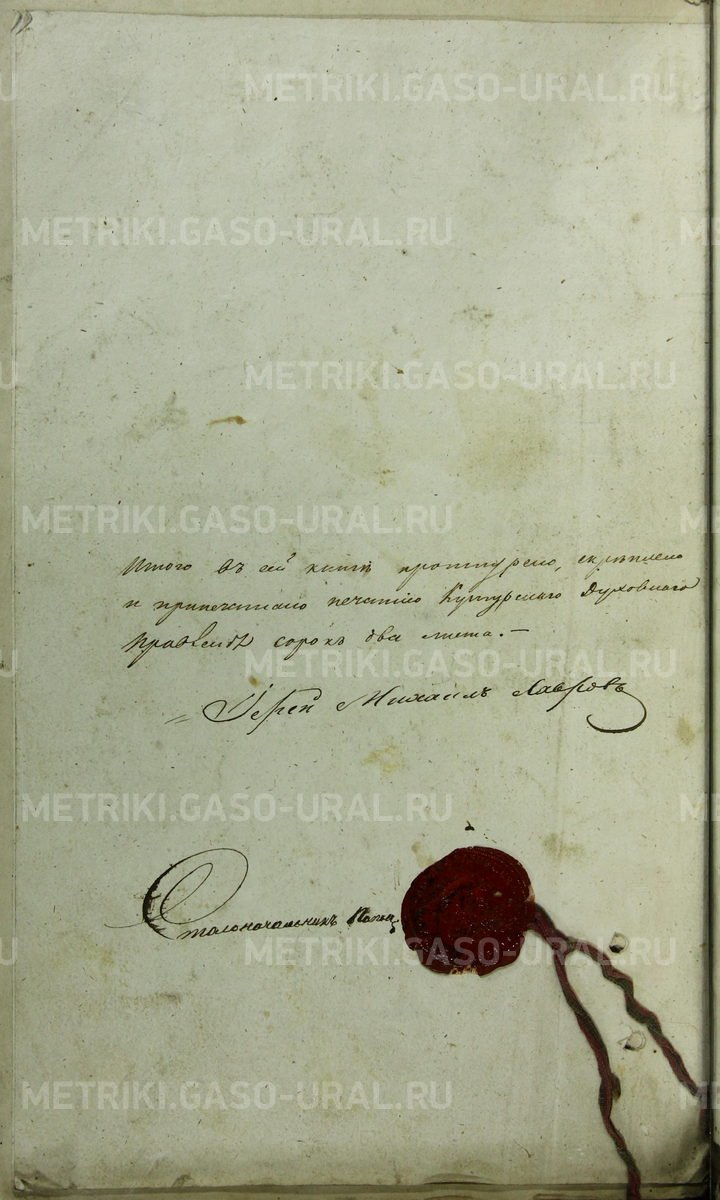 METRIKI.GASO-URAL.RU
METRIKI.GASO-URAL.RU
METRIKI.GASO-URAL.RU
METRIKI.GASO-URAL.RU
Итого въ сей книгѣ прошнурено, скрѣплено
и припечатано печатию Кунгурскаго Духовнаго
Правления сорокъ два листа. –
METRIKI.GASO-URAL.RU
= Іерей Михаилъ Лавровъ
METRIKI.GASO-URAL.RU
Столоначальникъ
METRIKI.GASO-URAL.RU
METRIKI.GASO-URAL.RU